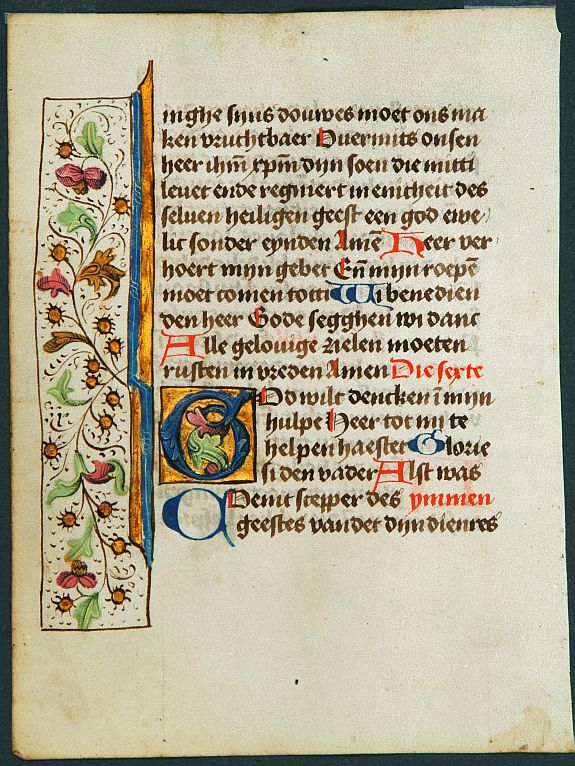 inghe sijns douwes moet ons ma
ken vruchtbaer Overmits onsen
heer ihm̄ xpm̄ dijn soen die mitti
levet ende regniert in enicheit des
selven heiligen geest een god ewe
lic sonder eynden Amē Heer ver
hoert mijn gebet En̄ mijn roepē
moet comen totti Wi benedien
den heer Gode segghen wi danc
Alle gelovige zielen moeten
rusten in vreden Amen Die sexte
God wilt dencken ī mijn
hulpe Heer tot mi te
helpen haestet Glorie
si den vader Alst was
Venit scepper des ymmen
geestes vandet dijn dienres